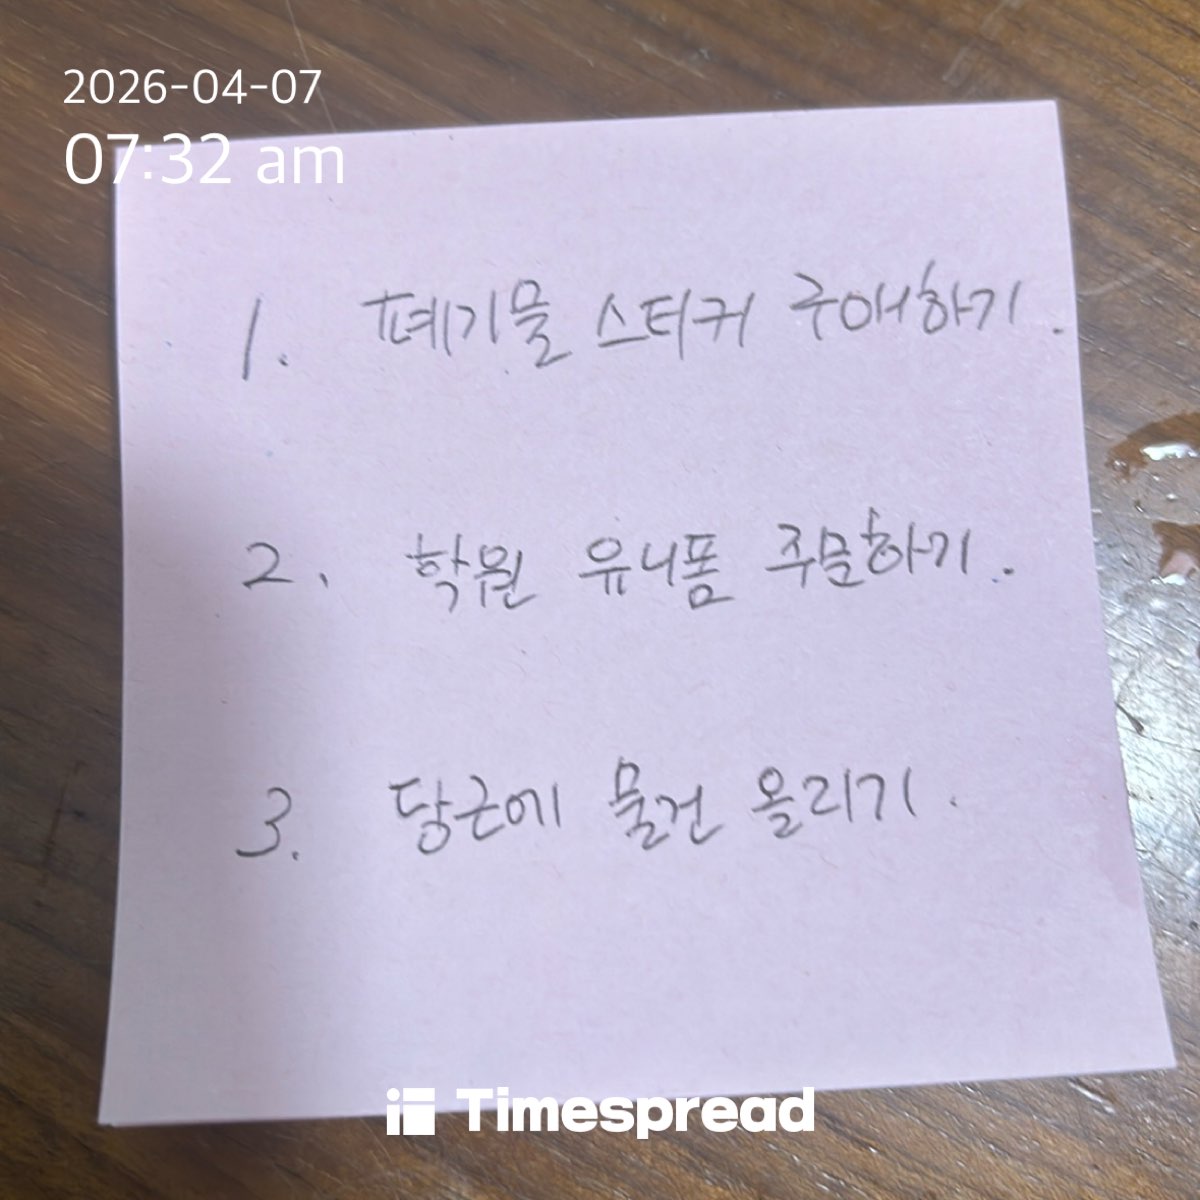 2026-04-07
07:32 am
1. 폐기물 스티커 구애하기.
2. 학원 유니폼 주문하기.
3. 당근에 물건 올리기.
Timespread